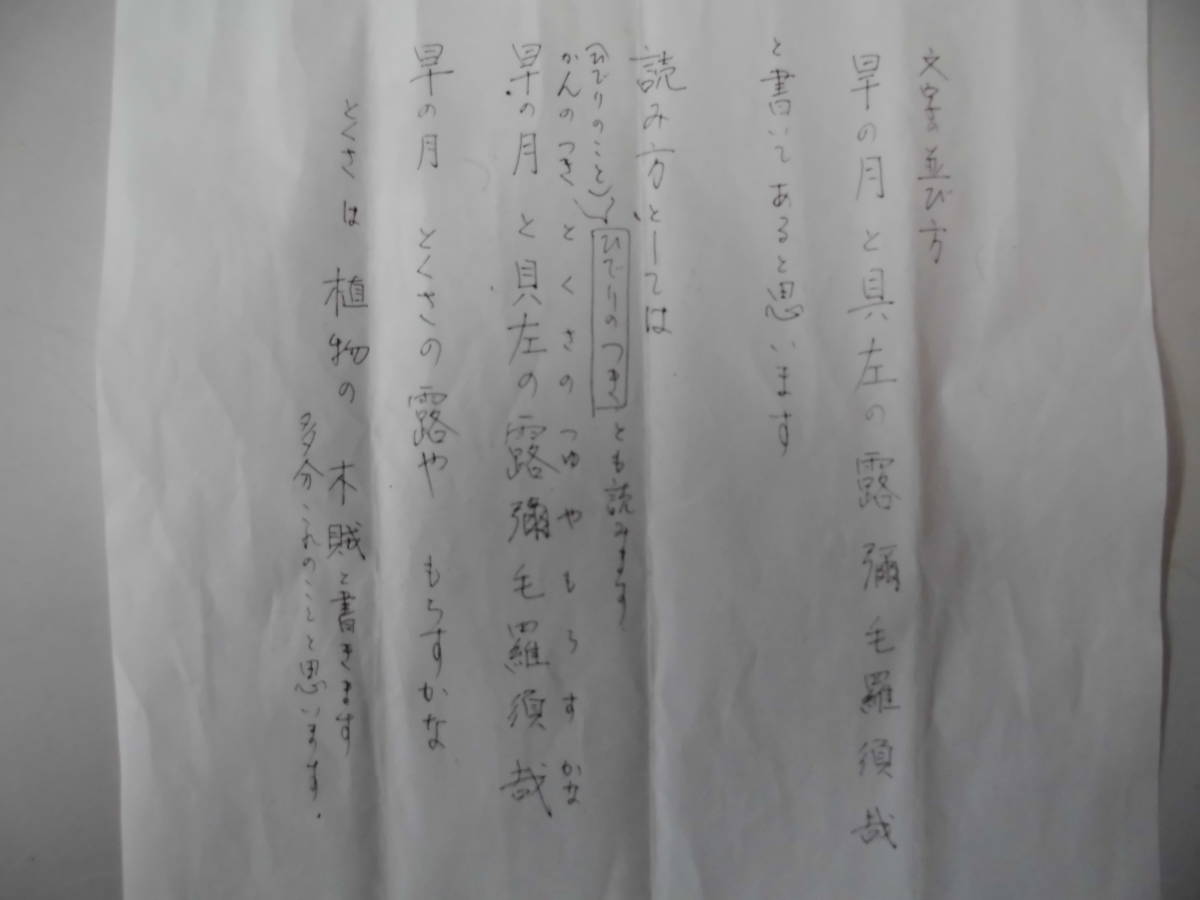 文字の並び方
旱の月と具左の露彌毛羅須哉
と書いてあると思います
読み方としては
(ひでりのこと) ひでりのつき とも読みます
かんのつき とくさの つゆや もらす かな
旱の月 と具左の露彌毛羅須哉
旱の月 とくさの露や もらすかな
とくさは 植物の 木賊と書きます
多分これのことと思います.